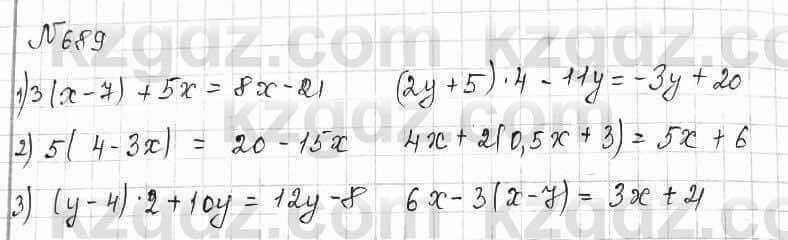 №689
1) 3(x-7) + 5x = 8x-21 (2y+5)·4-11y=-3y+20
2) 5(4-3x) = 20-15x 4x+2(0,5x+3)=5x+6
3) (y-4)·2+10y=12y-8 6x-3(x-7)=3x+21